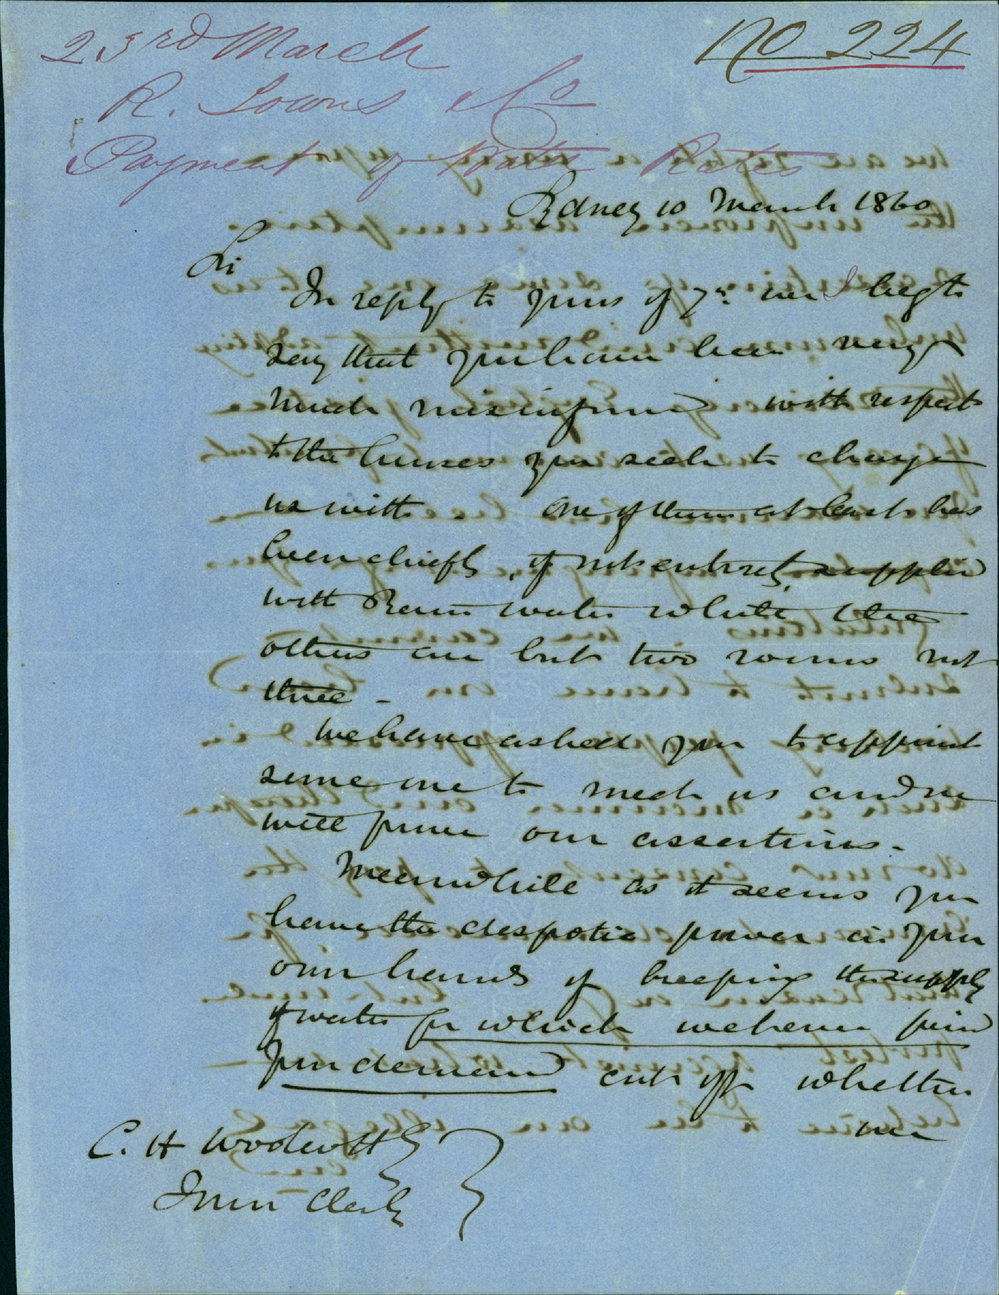 23rd March
No 224
R. Towns & Co
Payment of Water Rates
Sydney 10 March 1860
Sir
In reply to yours of 7th we beg to
say that you have been very
much misinformed with respect
to the houses you seek to charge
us with. One of them at least has
been chiefly, if not entirely, supplied
with Rain water while the
others are but two rooms not
three -
We have asked you to appoint
some one to meet us and we
will prove our assertions.
Meanwhile as it seems you
have the despotic power in your
own hands of keeping the supply
of water for which we have paid
your demand cut off whether
we
C. H. Woolcott
Town Clerk